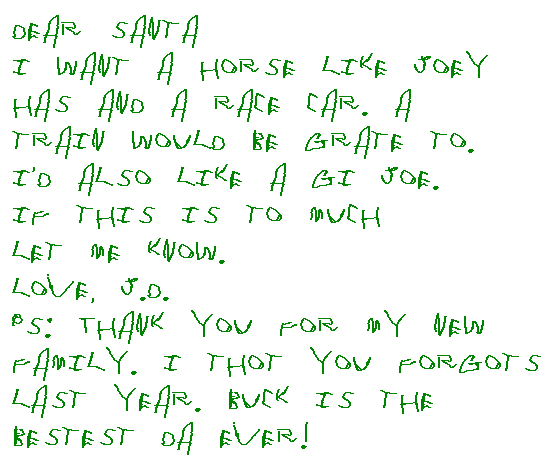 DEAR SANTA
I WANT A HORSE LIKE JOEY
HAS AND A RACE CAR. A
TRAIN WOULD BE GRATE TO.
I'D ALSO LIKE A GI JOE.
IF THIS IS TO MUCH
LET ME KNOW.
LOVE, J.D.
PS: THANK YOU FOR MY NEW
FAMILY. I THOT YOU FORGOTS
LAST YEAR. BUCK IS THE
BESTEST DA EVER!